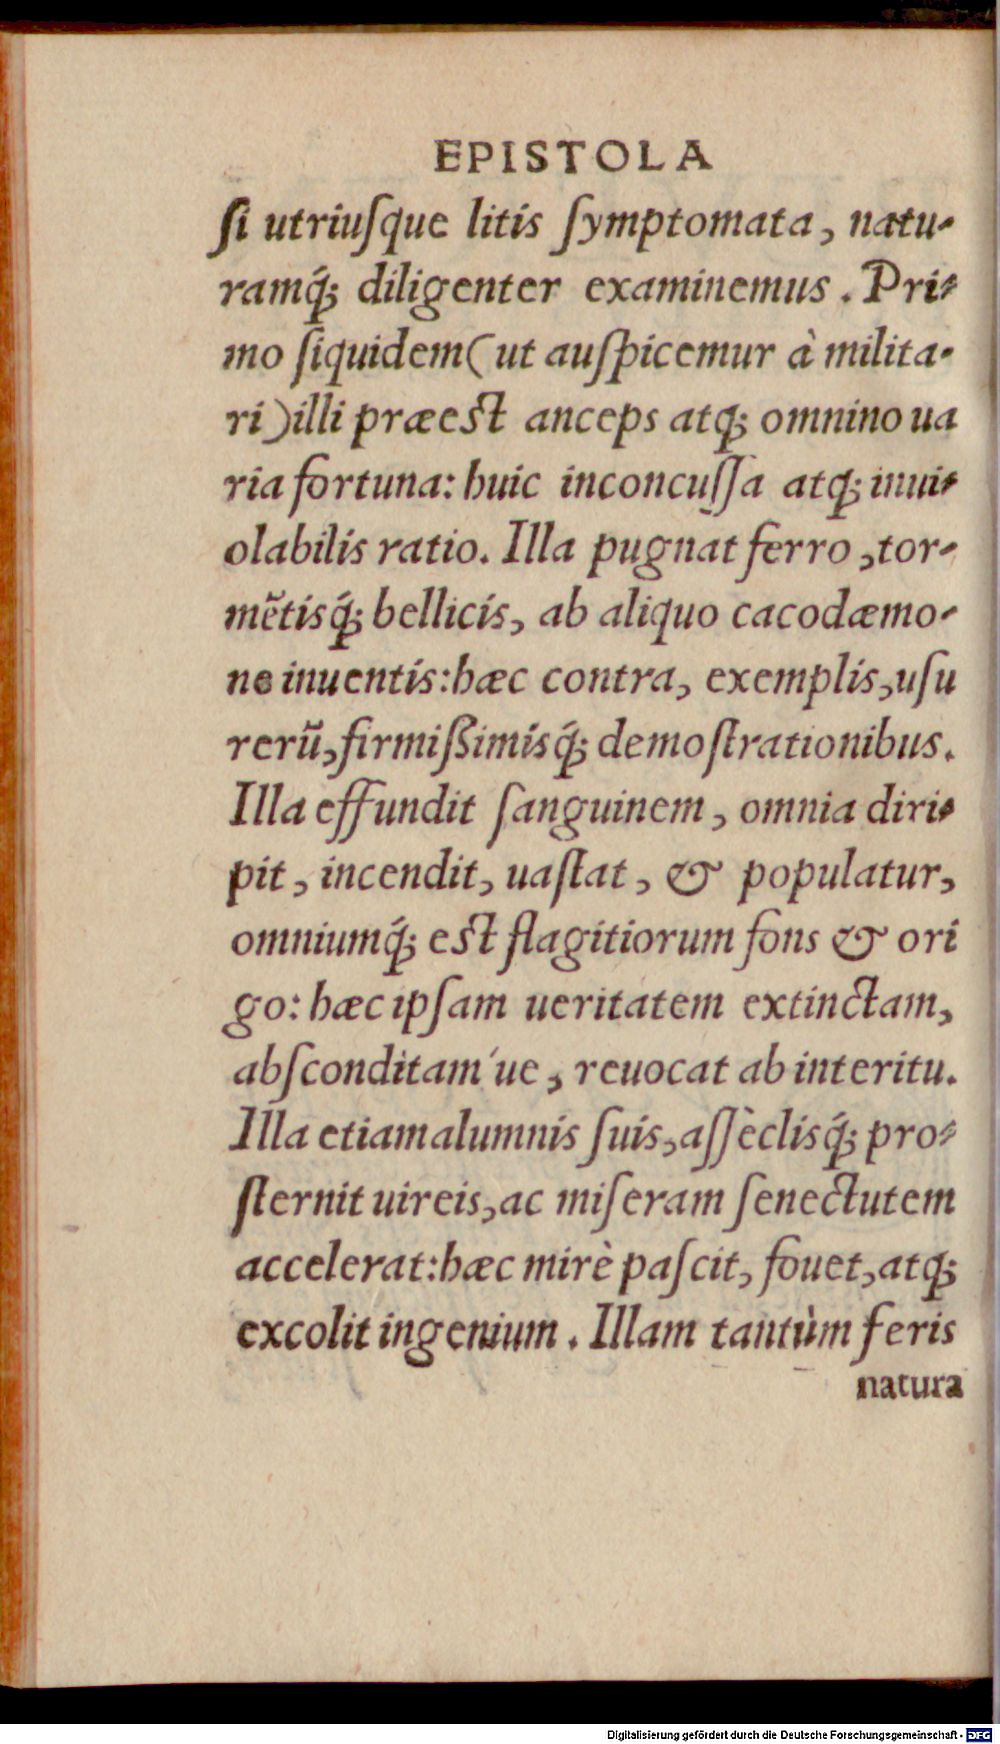 EPISTOLA
ſi utriuſque litis ſymptomata, natu-
ramq́; diligenter examinemus. Pri-
mo ſiquidem (ut auſpicemur à milita-
ri) illi præest anceps atq; omnino ua
ria fortuna: huic inconcuſſa atq; inui-
olabilis ratio. Illa pugnat ferro, tor-
mẽtisq́; bellicis, ab aliquo cacodæmo-
ne inuentis: hæc contra, exemplis, uſu
rerũ, firmißimisq́; demoſtrationibus.
Illa effundit ſanguinem, omnia diri-
pit, incendit, uaſtat, & populatur,
omniumq́; est flagitiorum fons & ori
go: hæc ipſam ueritatem extinctam,
abſconditam´ue, reuocat ab interitu.
Illa etiam alumnis ſuis, aſſèclisq́; pro-
ſternit uireis, ac miſeram ſenectutem
accelerat: hæc mirè paſcit, fouet, atq;
excolit ingenium. Illam tantùm feris
natura
Digitalisierung gefördert durch die Deutsche Forschungsgemeinschaft - DFG